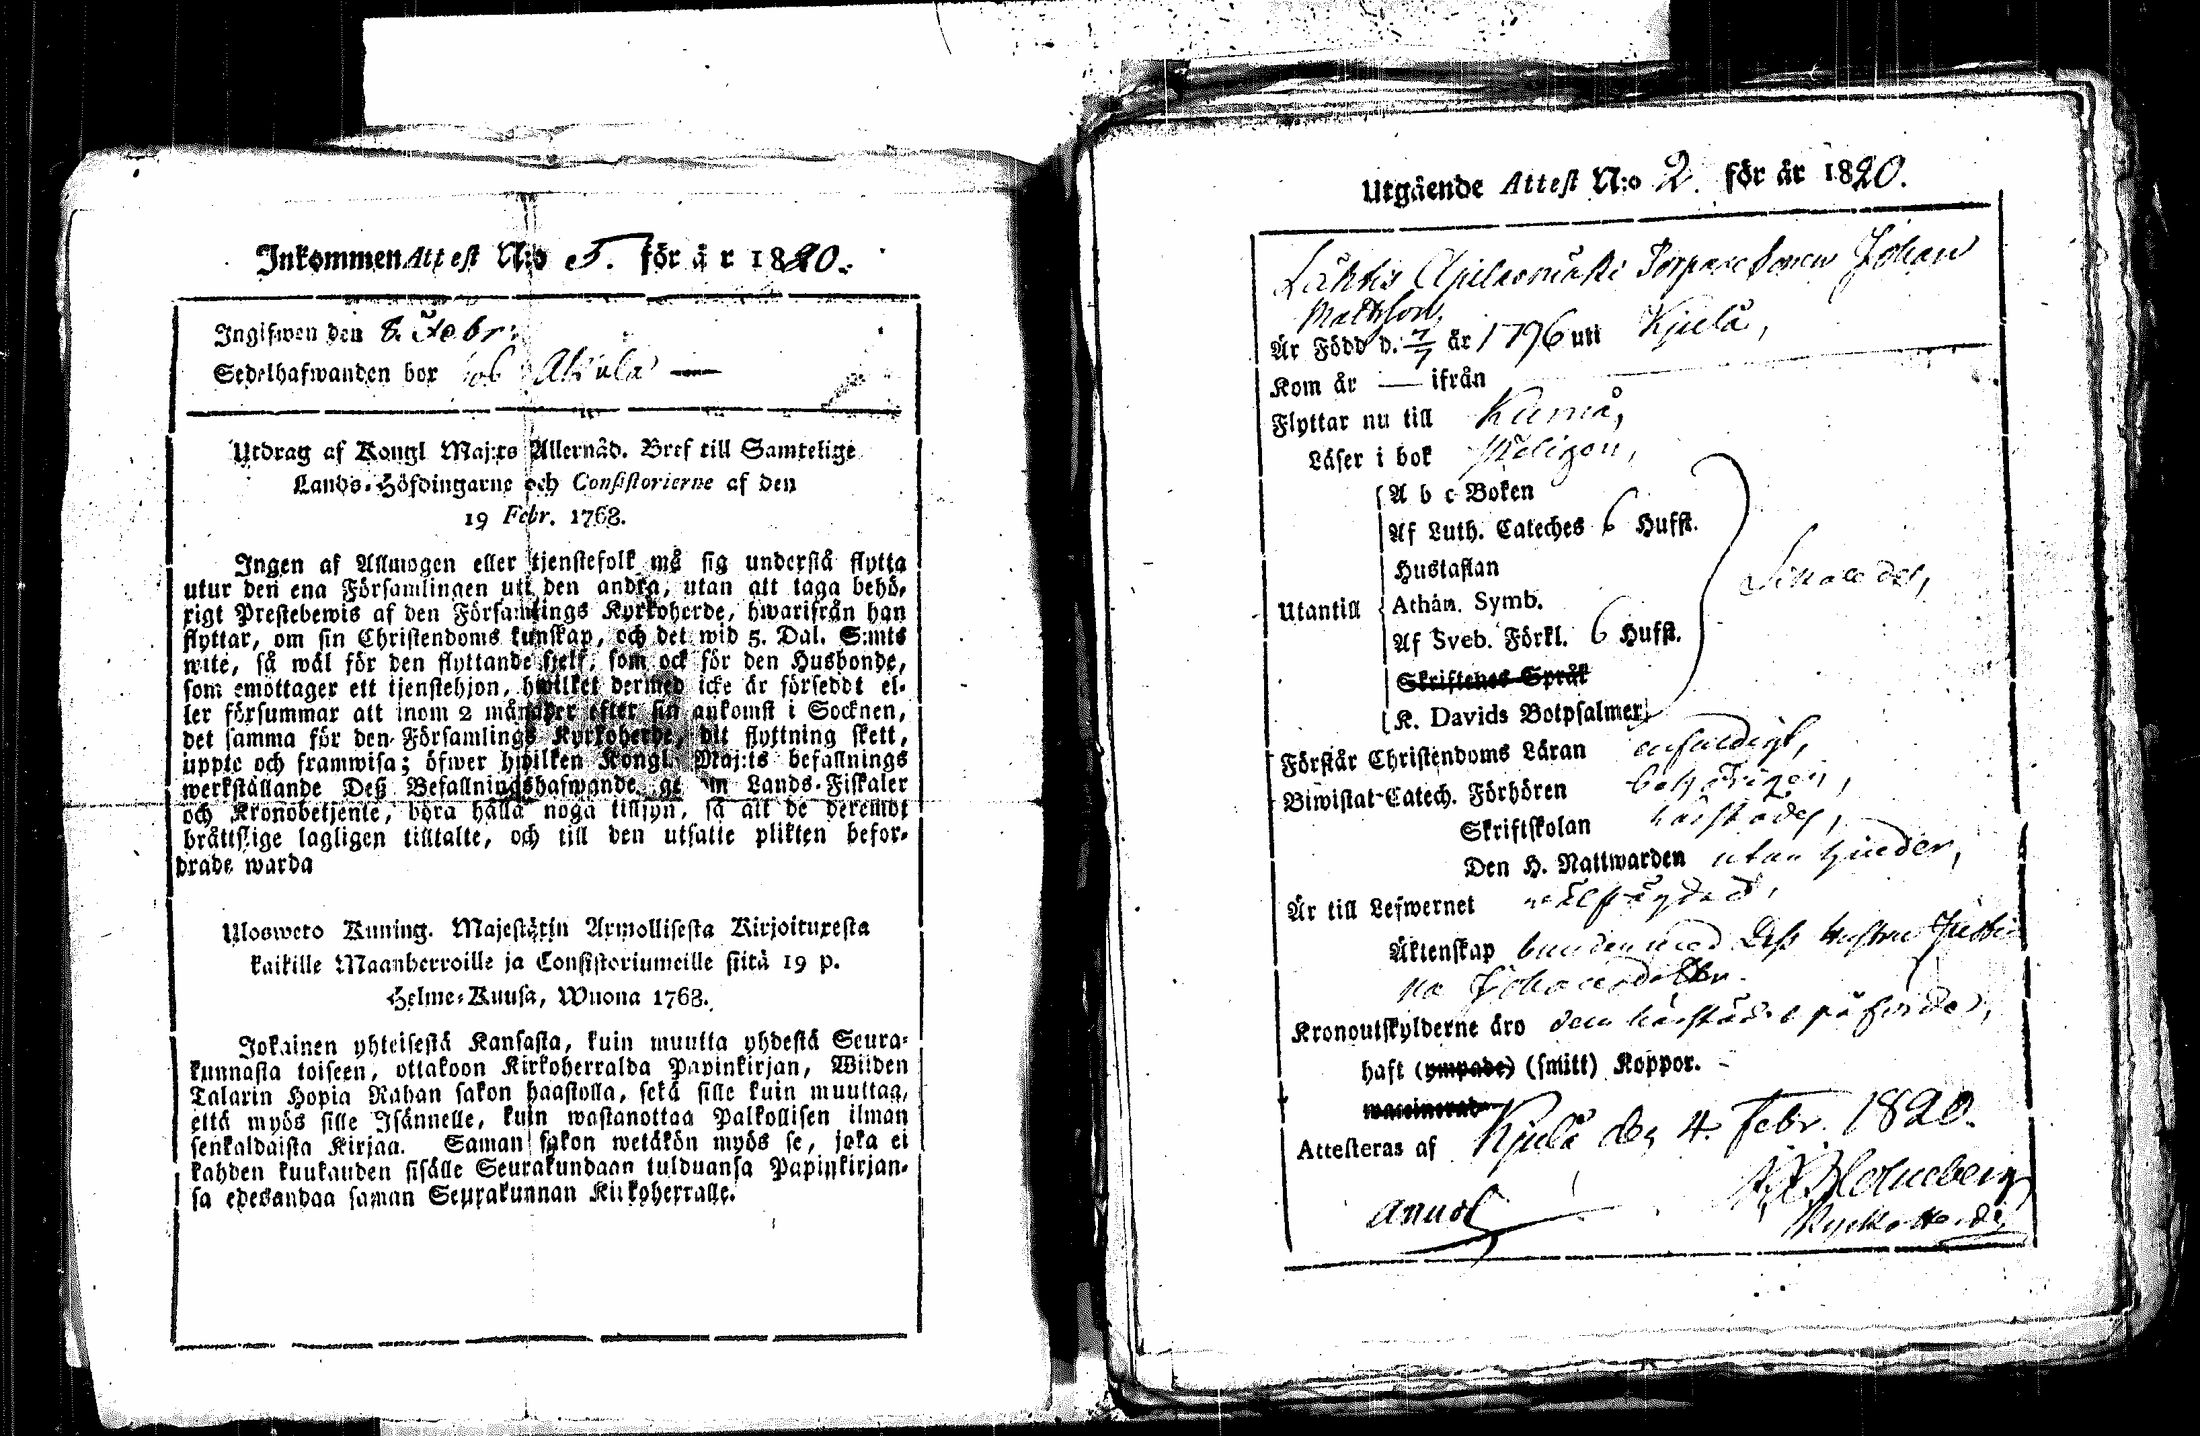 Inkommen Attest N:o 5. för år 1820.
Ingifwen den 8. Febr:
Sedelhafwanden bor
Utdrag af Kongl Maj:ts Allernåd. Bref till Samtelige
Lands-Höfdingarne och Consistorierne af den
19 Febr. 1768.
Ingen af Allmogen eller tjenstefolk må sig understå flytta
utur den ena Församlingen uti den andra, utan att taga behö-
rigt Prestebewis af den Församlings Kyrkoherde, hwarifrån han
flyttar, om sin Christendoms kunskap, och det wid 5. Dal. S:mts
wite, så wäl för den flyttande sjelf, som ock för den Husbonde,
som emottager ett tjenstehjon, hwilket dermed icke är försedt el-
ler försummar att inom 2 månader efter sin ankomst i Socknen,
det samma för den Församlings Kyrkoherde, dit flyttning skett,
uppte och framwisa; öfwer hwilken Kongl. Maj:ts befallnings
werkställande Deß Befallningshafwande, genom Lands-Fiskaler
och Kronobetjente, böra hålla noga tillsyn, så att de deremot
bråttslige lagligen tilltalte, och till den utsatte plikten befor-
drade warda
Ulosweto Kuning. Majestätin Armollisesta Kirjoituxesta
kaikille Maanherroille ja Consistoriumeille siitä 19 p.
Helme-Kuusa, Wuona 1768.
Jokainen yhteisestä Kansasta, kuin muutta yhdestä Seura-
kunnasta toiseen, ottakoon Kirkoherralda Papinkirjan, Wiiden
Talarin Hopia Rahan sakon haastolla, sekä sille kuin muuttaa,
että myös sille Isännelle, kuin wastanottaa Palkollisen ilman
senkaldaista Kirjaa. Saman sakon wetäkön myös se, joka ei
kahden kuukauden sisälle Seurakundaan tulduansa Papinkirjan-
sa edesandaa saman Seurakunnan Kirkoherralle.
Utgående Attest N:o 2. för år 1820.
Lähtis Torparesonen Johan
Mattsson,
Är Född d. 7/7 år 1796 uti Kjulå,
Kom år — ifrån
Flyttar nu till Kumå,
Läser i bok
A b c Boken
Af Luth. Cateches 6 Hufst.
Hustaflan
Utantill Athan. Symb.
Af Sveb. Förkl. 6 Hufst.
Skriftenes Språk
K. Davids Botpsalmer
Förstår Christendoms Läran enfaldigt,
Biwistat Catech. Förhören behörigen,
Skriftskolan härstädes,
Den H. Nattwarden utan hinder,
Är till Lefwernet wälfrägdad,
Äktenskap bunden med Dess hustru Justi-
na Johansdotter.
Kronoutskylderne äro dem härstädes påförde,
haft (ympade) (smitt) Koppor.
waccinerad
Attesteras af Kjulå den 4. Febr. 1820.
Kyrkoherde